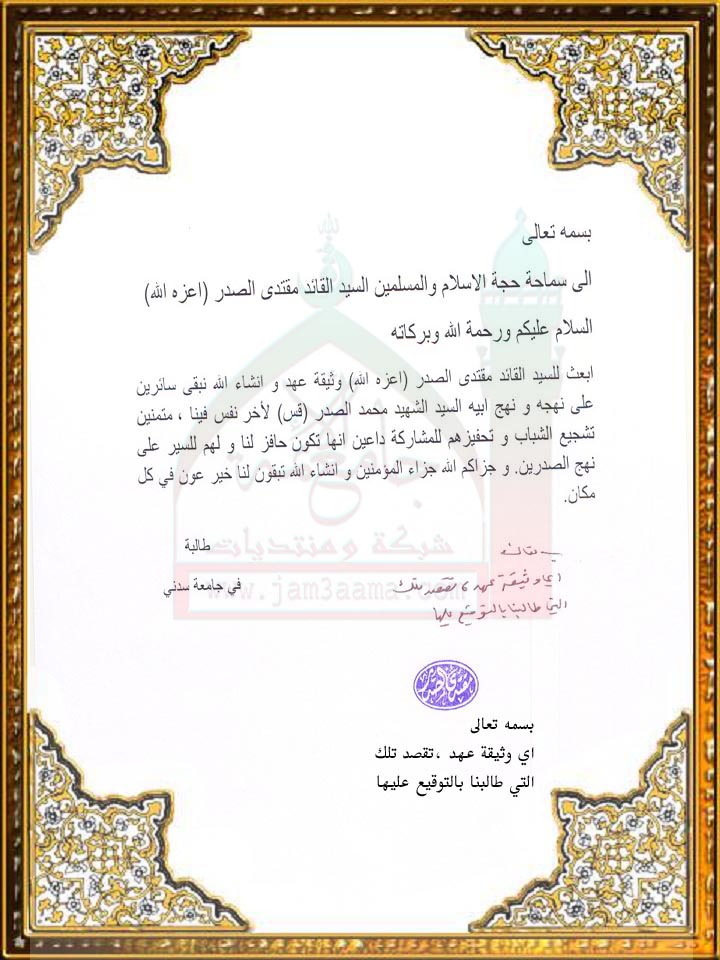 بسمه تعالى
الى سماحة حجة الاسلام والمسلمين السيد القائد مقتدى الصدر (اعزه الله)
السلام عليكم ورحمة الله وبركاته
ابعث للسيد القائد مقتدى الصدر (اعزه الله) وثيقة عهد و انشاء الله نبقى سائرين
على نهجه و نهج ابيه السيد الشهيد محمد الصدر (قس) لأخر نفس فينا ، متمنين
تشجيع الشباب و تحفيزهم للمشاركة داعين انها تكون حافز لنا و لهم للسير على
نهج الصدرين. و جزاكم الله جزاء المؤمنين و انشاء الله تبقون لنا خير عون في كل
مكان.
طالبة
في جامعة سدني
شبكة ومنتديات
www.jam3aama.com
بسمه تعالى
اي وثيقة عهد ، تقصد تلك
التي طالبنا بالتوقيع عليها
مقتدى الصدر
بسمه تعالى
اي وثيقة عهد ،تقصد تلك
التي طالبنا بالتوقيع عليها